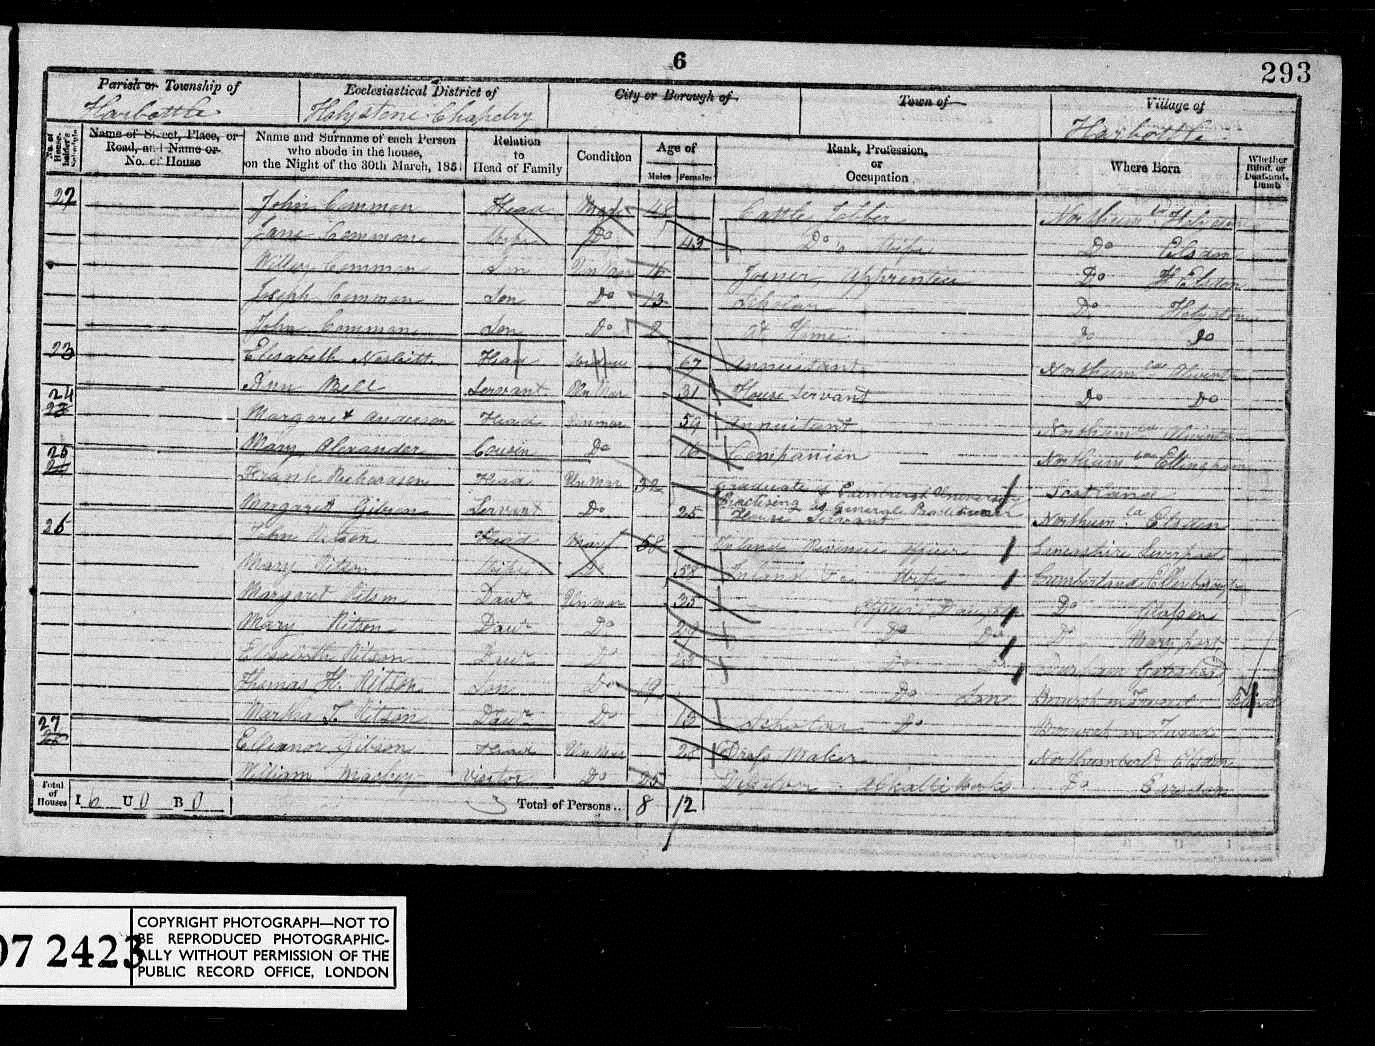 6
293
Parish or Township of
Harbottle
Ecclesiastical District of
Holystone Chapelry
City or Borough of
Town of
Village of
Harbottle
No. of House-holder's Schedule
Name of Street, Place, or Road, and Name or No. of House
Name and Surname of each Person who abode in the house, on the Night of the 30th March, 1851
Relation to Head of Family
Condition
Age of
Males Females
Rank, Profession, or Occupation
Where Born
Whether Blind, or Deaf-and-Dumb
22 John Common Head Mar 48 Cattle Jobber Northum Holyston
Jane Common Wife Do 43 Do's Wife Do Elsdon
Common Son Un Mar 16 Joiner, Apprentice Do Elsdon
Joseph Common Son Do 13 Scholar Do Holyston
John Common Son Do 2 At Home Do Do
23 Elisabeth Nesbitt Head 67 Annuitant Northum
Ann Bell Servant Un Mar 31 House Servant Do Do
24 23 Margaret Anderson Head Un mar 59 Annuitant
Mary Alexander Cousin Do 16 Companion Ellingham
25 24 Frank Richardson Head Un Mar 32 Graduate of Edinburgh University Practising as General Practitioner Scotland
Margaret Gibson Servant Do 25 House Servant Northum Elsdon
26 John Ritson Head Mar 58 Inland Revenue Officer Lancashire Liverpool
Mary Ritson Wife Do 58 Inland Wife Cumberland Ellenborough
Margaret Ritson Dawr Un mar 35 Do
Mary Ritson Dawr Do 29 Do Do Do Maryport
Elisabeth Ritson Dawr D 23 Do Do
Thomas H. Ritson Son Do 19 Do Son
Ritson Dawr D 13 Scholar Do
27 Elleanor Gibson Head Un Mar 28 Dress Maker Northumberld Elsdon
William Mackey Visitor Do 25 Alkalli Works Do
Total of Houses
I 6 U 0 B 0
Total of Persons.. 8 12
07 2423
COPYRIGHT PHOTOGRAPH—NOT TO
BE REPRODUCED PHOTOGRAPHIC-
ALLY WITHOUT PERMISSION OF THE
PUBLIC RECORD OFFICE, LONDON